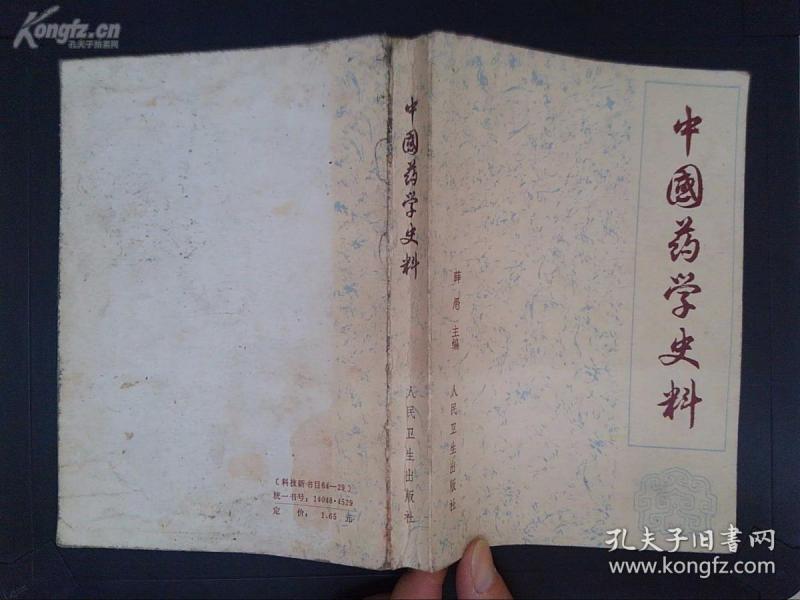 Kongfz.cn
孔夫子拍卖网
中國药学史料
薛愚 主编
人民卫生出版社
中國药学史料
人民卫生出版社
〔科技新书目64—29〕
统一书号：14048·4529
定 价： 1.65 元
孔夫子旧书网
www.kongfz.com